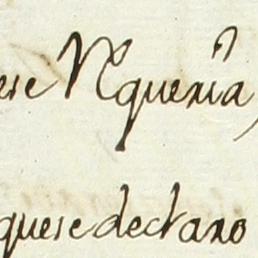 ese Nquería
quese declaro